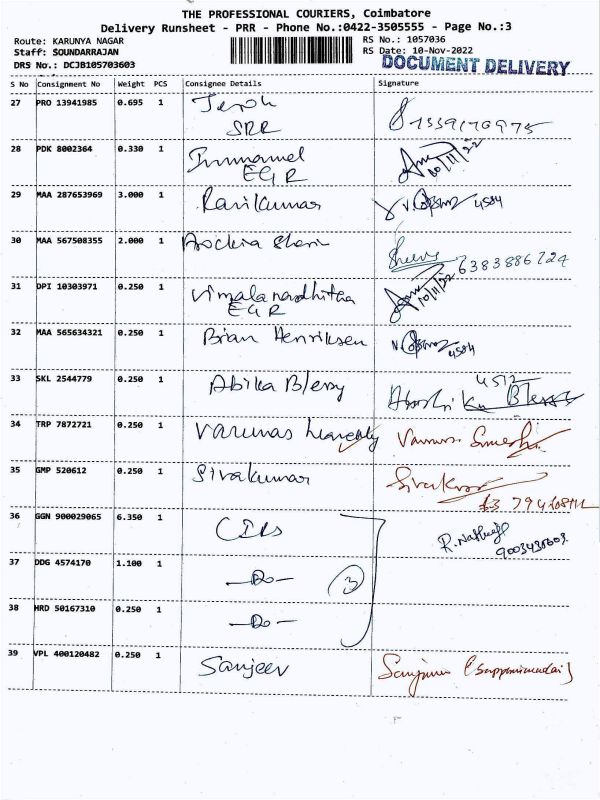 THE PROFESSIONAL COURIERS, Coimbatore
Delivery Runsheet - PRR - Phone No.:0422-3505555 - Page No.:3
Route: KARUNYA NAGAR RS No.: 1057036
Staff: SOUNDARRAJAN RS Date: 10-Nov-2022
DRS No.: DCJB105703603 DOCUMENT DELIVERY
S No Consignment No Weight PCS Consignee Details Signature
27 PRO 13941985 0.695 1
SRR
28 PDK 8002364 0.330 1 Immanuel 10/11/22
EGR
29 MAA 287653969 3.000 1 Ravikumar 4584
30 MAA 567508355 2.000 1
6383886224
31 DPI 10303971 0.250 1 10/11/22
EGR
32 MAA 565634321 0.250 1 Brian Henriksen 4584
33 SKL 2544779 0.250 1 Abika Blessy 4512
34 TRP 7872721 0.250 1 Varunas
35 GMP 520612 0.250 1 Sivakumar
36 GGN 900029065 6.350 1
37 DDG 4574170 1.100 1 -Do- 3
38 HRD 50167310 0.250 1 -Do-
39 VPL 400120482 0.250 1 Sanjeev